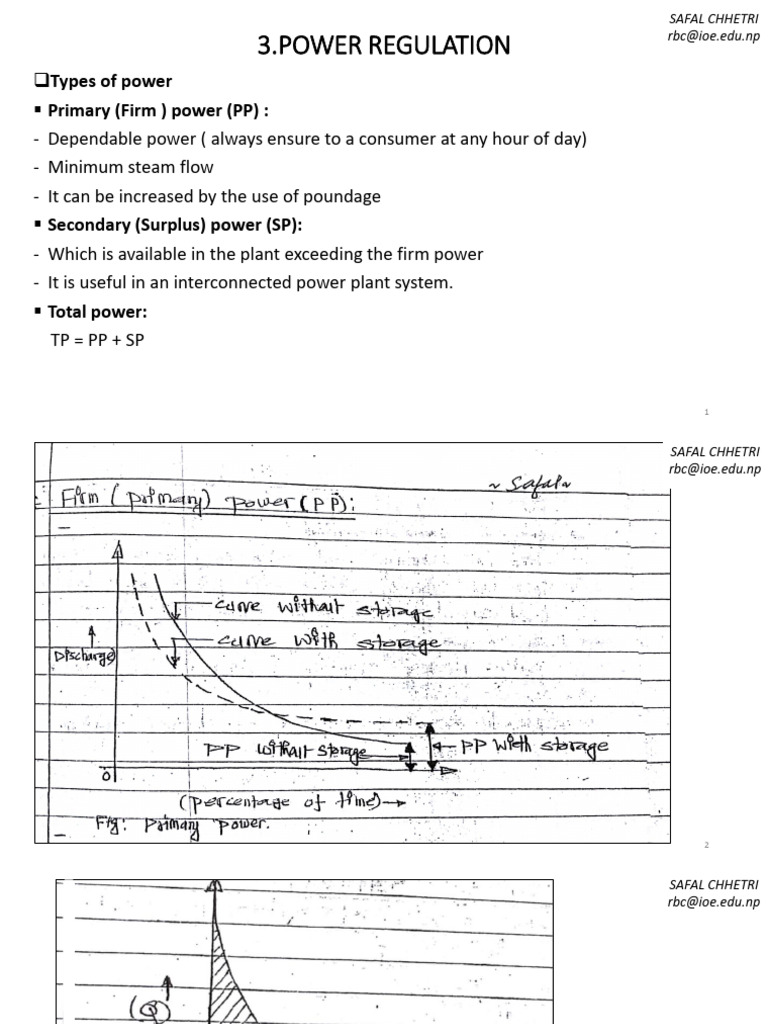 SAFAL CHHETRI
rbc@ioe.edu.np
3.POWER REGULATION
❑Types of power
▪ Primary (Firm ) power (PP) :
- Dependable power ( always ensure to a consumer at any hour of day)
- Minimum steam flow
- It can be increased by the use of poundage
▪ Secondary (Surplus) power (SP):
- Which is available in the plant exceeding the firm power
- It is useful in an interconnected power plant system.
▪ Total power:
TP = PP + SP
1
SAFAL CHHETRI
rbc@ioe.edu.np
~ Safal ~
Firm (primary) power (PP):
curve without storage
curve with storage
Discharge
PP without storage
PP with storage
0
(percentage of time)
Fig: Primary power.
2
SAFAL CHHETRI
rbc@ioe.edu.np
(Q)